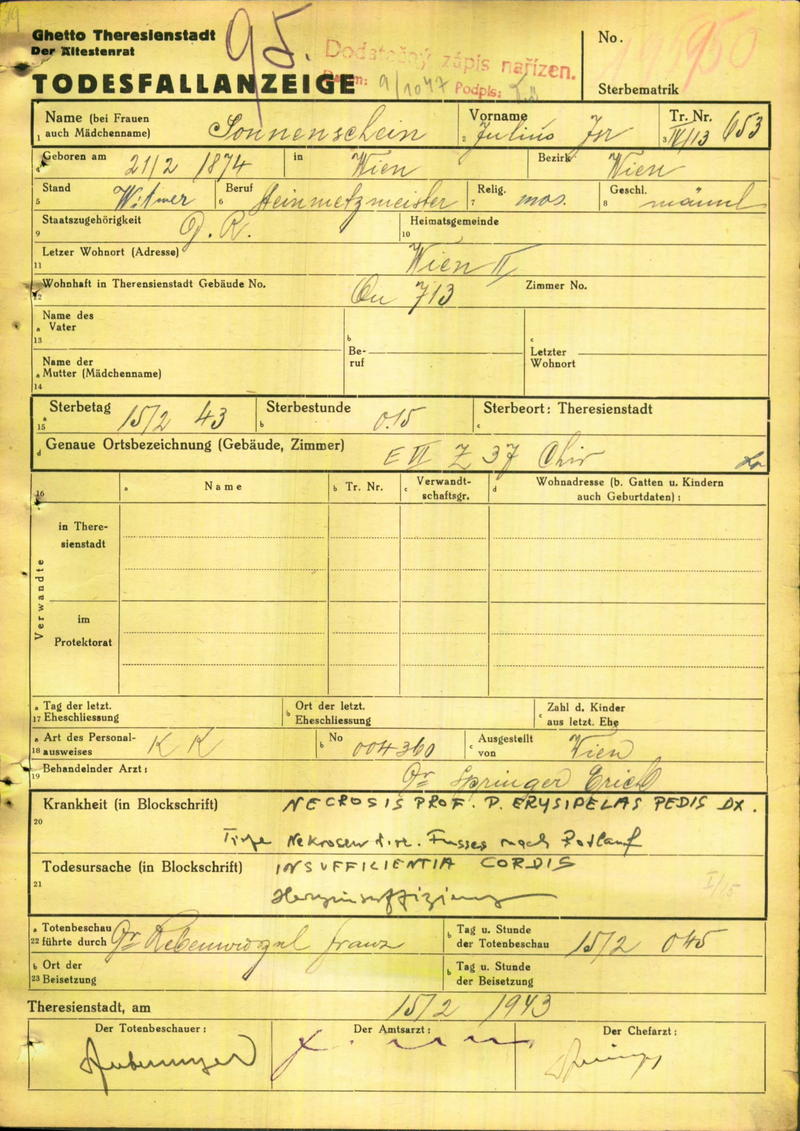 Ghetto Theresienstadt
Der Ältestenrat
95.
Dodatečný zápis nařízen.
Datum: 9/1047 Podpis:
No.
TODESFALLANZEIGE
Sterbematrik
Name (bei Frauen
1 auch Mädchenname) Sonnenschein
Vorname
2 Julius Isr
Tr. Nr.
3 IV/13 053
4 Geboren am 21/2 1874 in Wien Bezirk Wien
Stand
5 Witwer
Beruf
6 Steinmetzmeister
Relig.
7 mos.
Geschl.
8 männl
Staatszugehörigkeit
9 D. R.
Heimatsgemeinde
10
Letzer Wohnort (Adresse)
11 Wien II
Wohnhaft in Theresienstadt Gebäude No.
12 Qu 713
Zimmer No.
Name des
a Vater
13
b
Be-
ruf
c
Letzter
Wohnort
Name der
a Mutter (Mädchenname)
14
a Sterbetag
15 15/2 43
b Sterbestunde 0.15
c Sterbeort: Theresienstadt
d Genaue Ortsbezeichnung (Gebäude, Zimmer) E VI Z 37 Chir
16
a Name
b Tr. Nr.
c Verwandt-
schaftsgr.
d Wohnadresse (b. Gatten u. Kindern
auch Geburtdaten):
Verwandte
in There-
sienstadt
im
Protektorat
a Tag der letzt.
17 Eheschliessung
b Ort der letzt.
Eheschliessung
c Zahl d. Kinder
aus letzt. Ehe
a Art des Personal-
18 ausweises K K
b No 004360
c Ausgestellt
von Wien
Behandelnder Arzt:
19 Dr Springer Erich
Krankheit (in Blockschrift)
20
NECROSIS PROF. P. ERYSIPELAS PEDIS DX.
Tiefe Nekrosen d. re. Fusses nach Rotlauf
Todesursache (in Blockschrift)
21
INSUFFICIENTIA CORDIS
Herzinsuffizienz
I/15
a Totenbeschau
22 führte durch Dr Franz
b Tag u. Stunde
der Totenbeschau 15/2 045
b Ort der
23 Beisetzung
b Tag u. Stunde
der Beisetzung
Theresienstadt, am 15/2 1943
Der Totenbeschauer:
Der Amtsarzt:
Der Chefarzt: